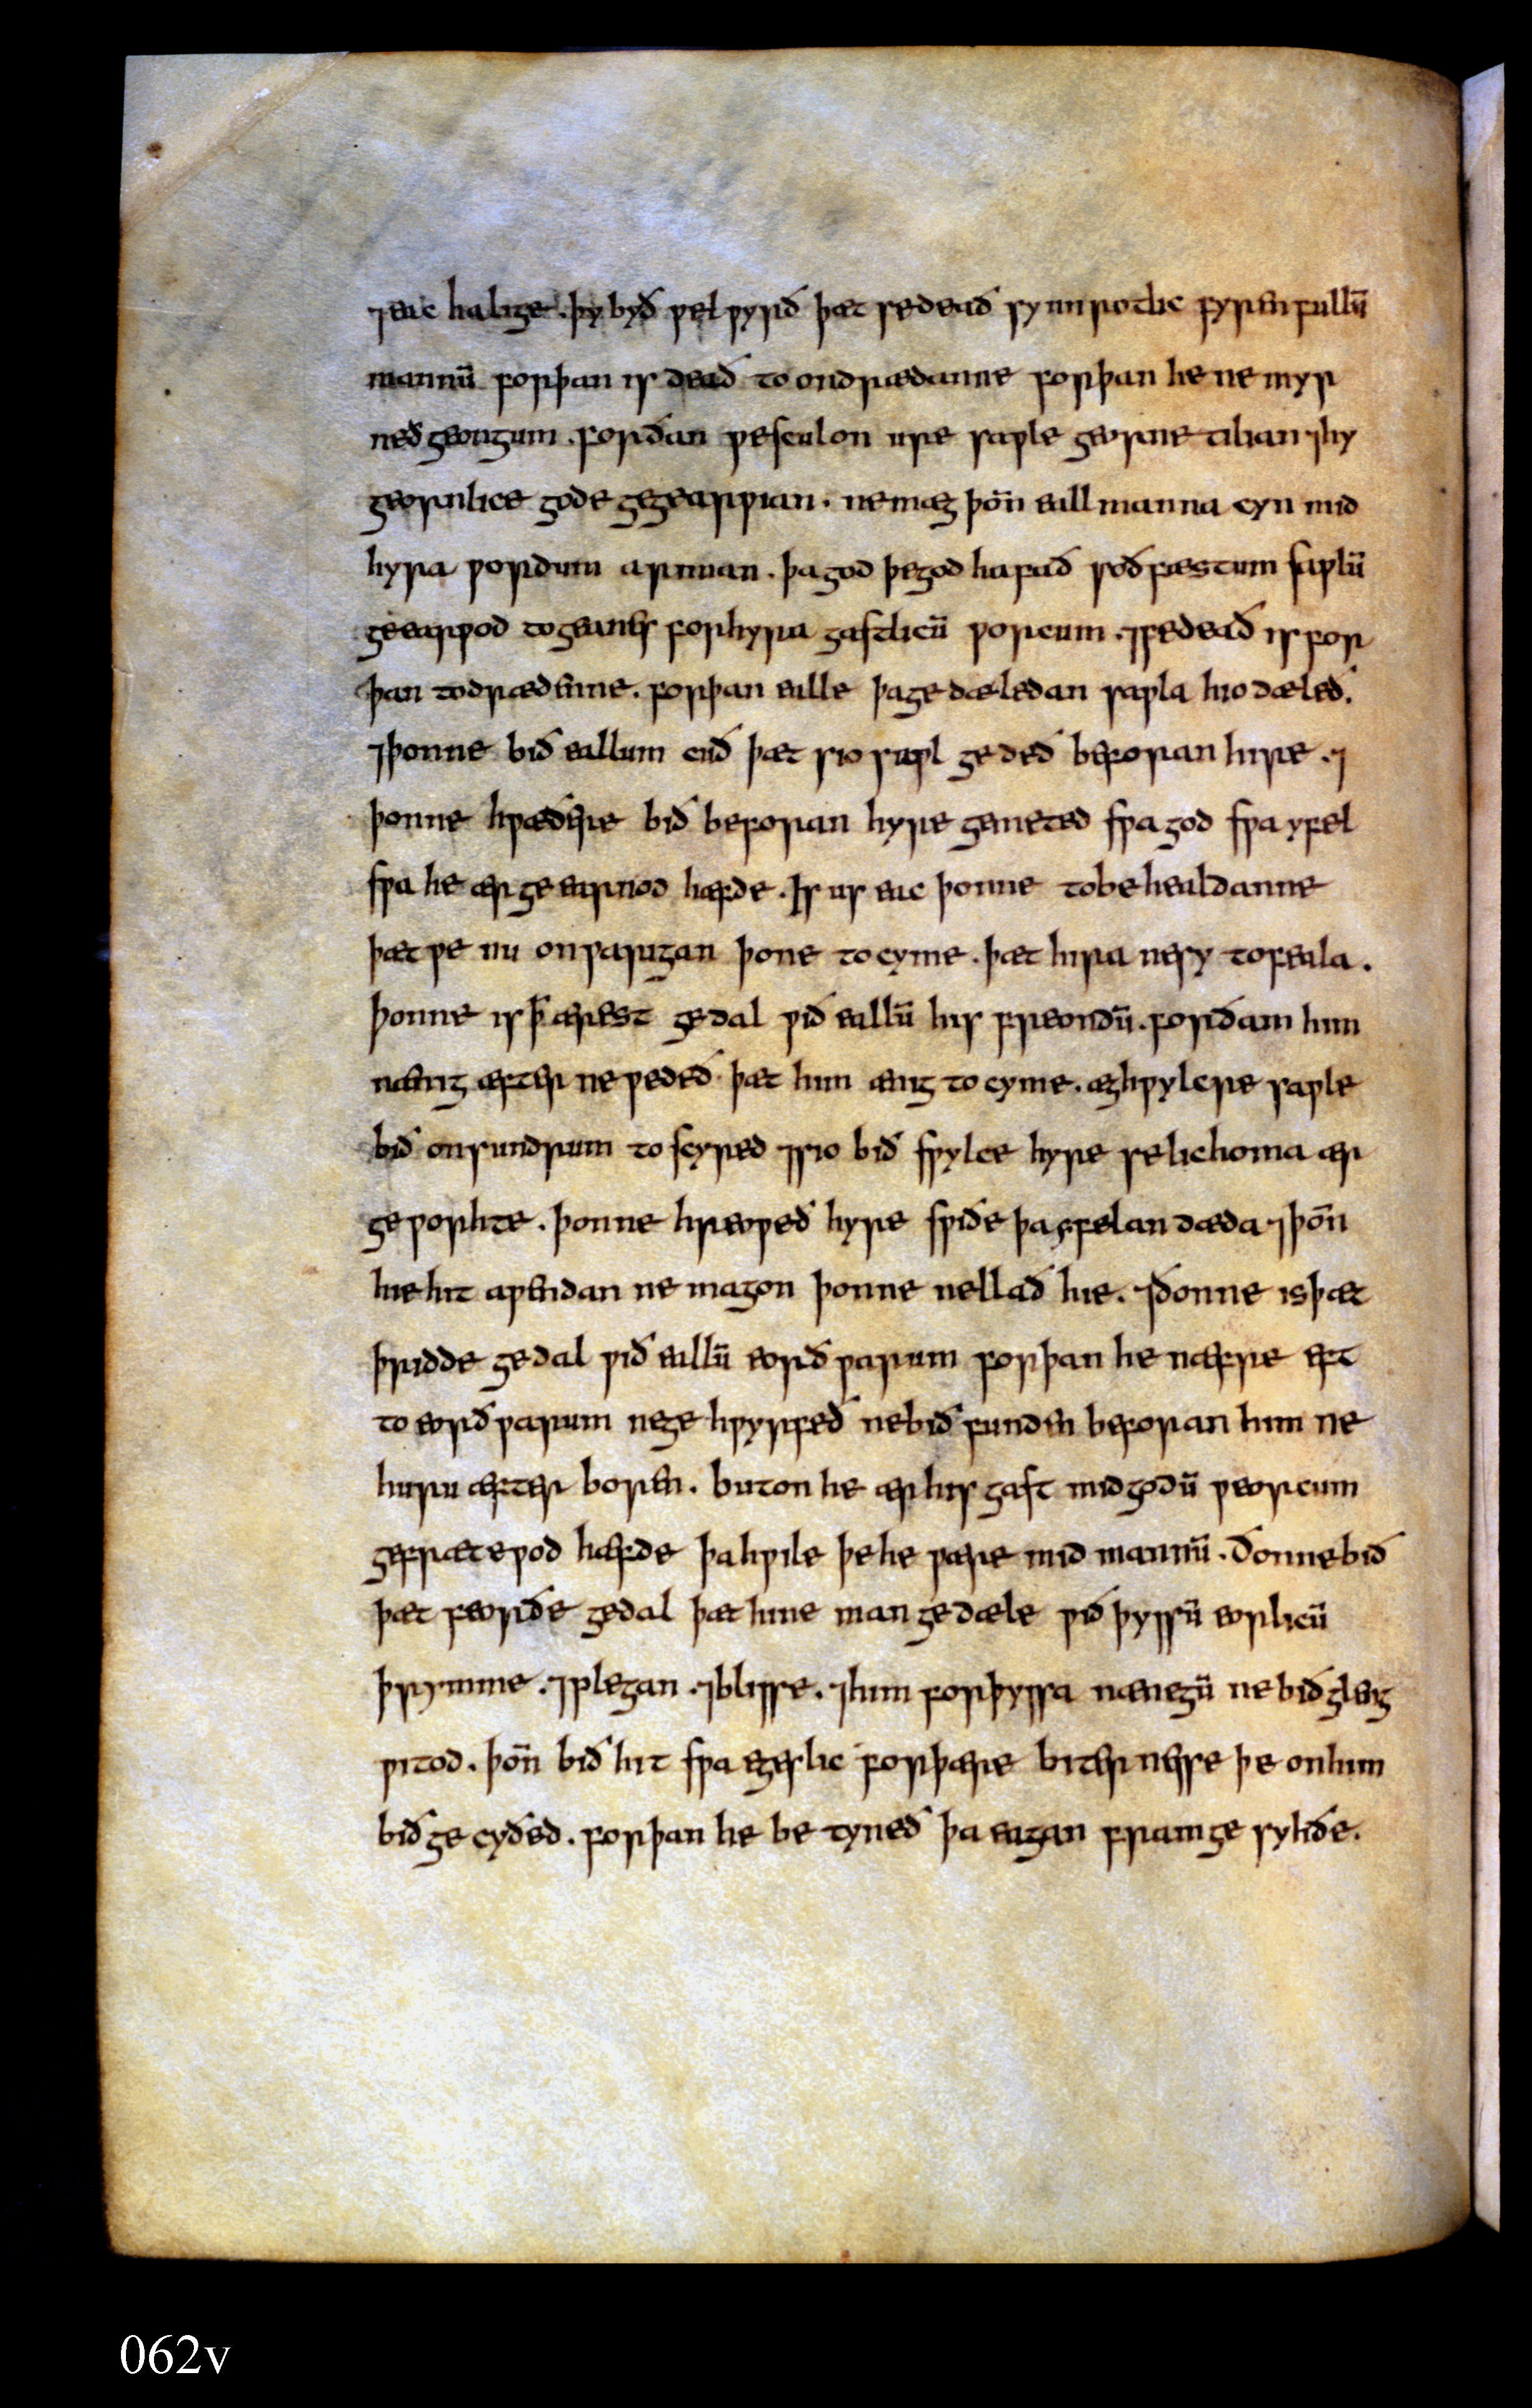 ⁊ eac halige . þy byð ƿel ƿyrð þæt se deað sy unrotlic fyrenfullū
mannū forþan is deað to ondrædanne forþan he ne myr
neð geongum . forðan ƿe sculon ure saƿle georne tilian ⁊ hy
geornlice gode gegearƿian . ne mæg þoñ eall manna cyn mid
hyra ƿordum ariman . þa god þe god hafað soðfæstum saƿlū
gegearƿod togeanes for hyra gastlicū ƿorcum . ⁊ se deað is for
þan to drædenne . forþan ealle þa gedæledan saƿla hio dæleð.
⁊ þonne bið eallum cuð þæt sio saƿl gedeð beforan hire . ⁊
þonne hƿæðere bið beforan hyre gemeted sƿa god sƿa yfel
sƿa he ær geearnod hæfde . Is us eac þonne to behealdanne
þæt ƿe nu onƿarigan þone tocyme . þæt hira ne sy to feala .
þonne is þ̄ ærest gedal ƿið eallū his freondū . forðam him
nænig æfter ne ƿeðeð þæt him ænig to cyme . æghƿylcre saƿle
bið onsundrum toscyred ⁊ sio bið sƿylce hyre se lichoma ær
geƿorhte . þonne hreoƿeð hyre sƿiðe þa yfelan dæda ⁊ þoñ
hie hit aƿendan ne magon þonne nellað hie . ⁊ ðonne is þæt
þridde gedal ƿið eallū eorðƿarum forþan he næfre eft
to eorðƿarum ne gehƿyrfeð ne bið funden beforan him ne
huru æfter boren . buton he ær his gast mid godū ƿeorcum
gefræteƿod hæfde þa hƿile þe he ƿære mid mannū . Ðonne bið
þæt feorðe gedal þæt hine man gedæle ƿið þyssū eorlicū
þrymme . ⁊ plegan . ⁊ blisse . ⁊ him for þyssa nænegū ne bið gleng
ƿitod . þoñ bið hit sƿa egeslic for þære biternesse þe on him
bið gecyðed . forþan he betyneð þa eagan fram gesyhðe .
062v